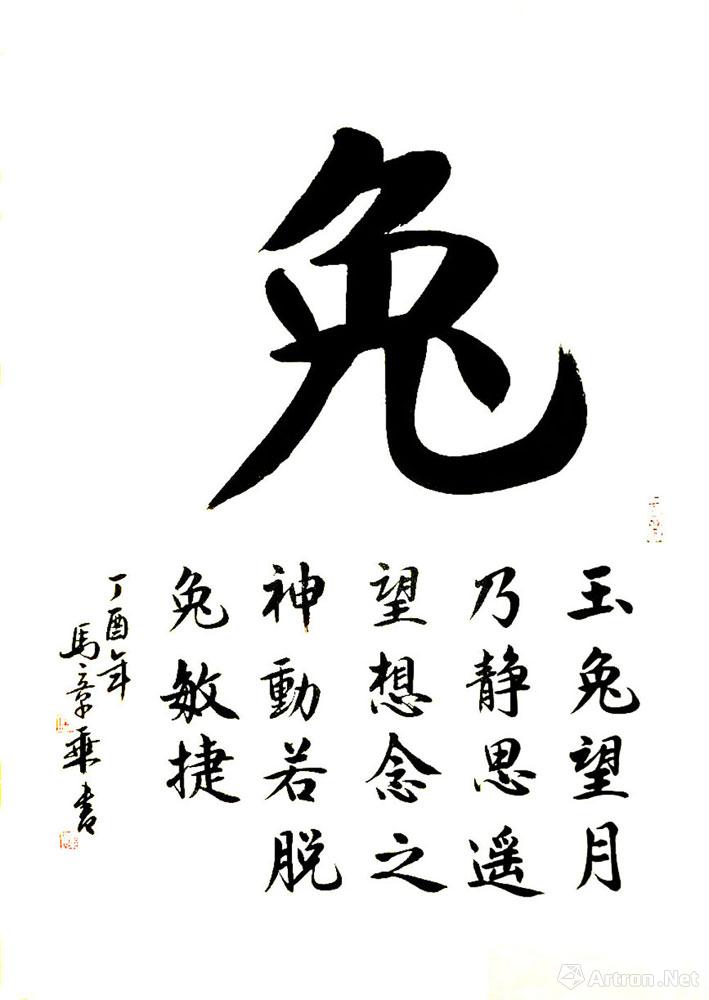 兔
玉兔望月
乃静思遥
望想念之
神動若脱
兔敏捷
丁酉年
馬章乘書
Artron.Net